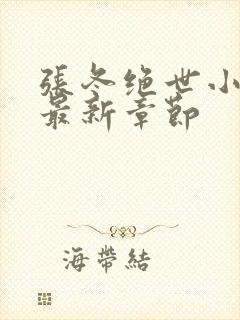 張冬绝世小
最新章節
海帶結